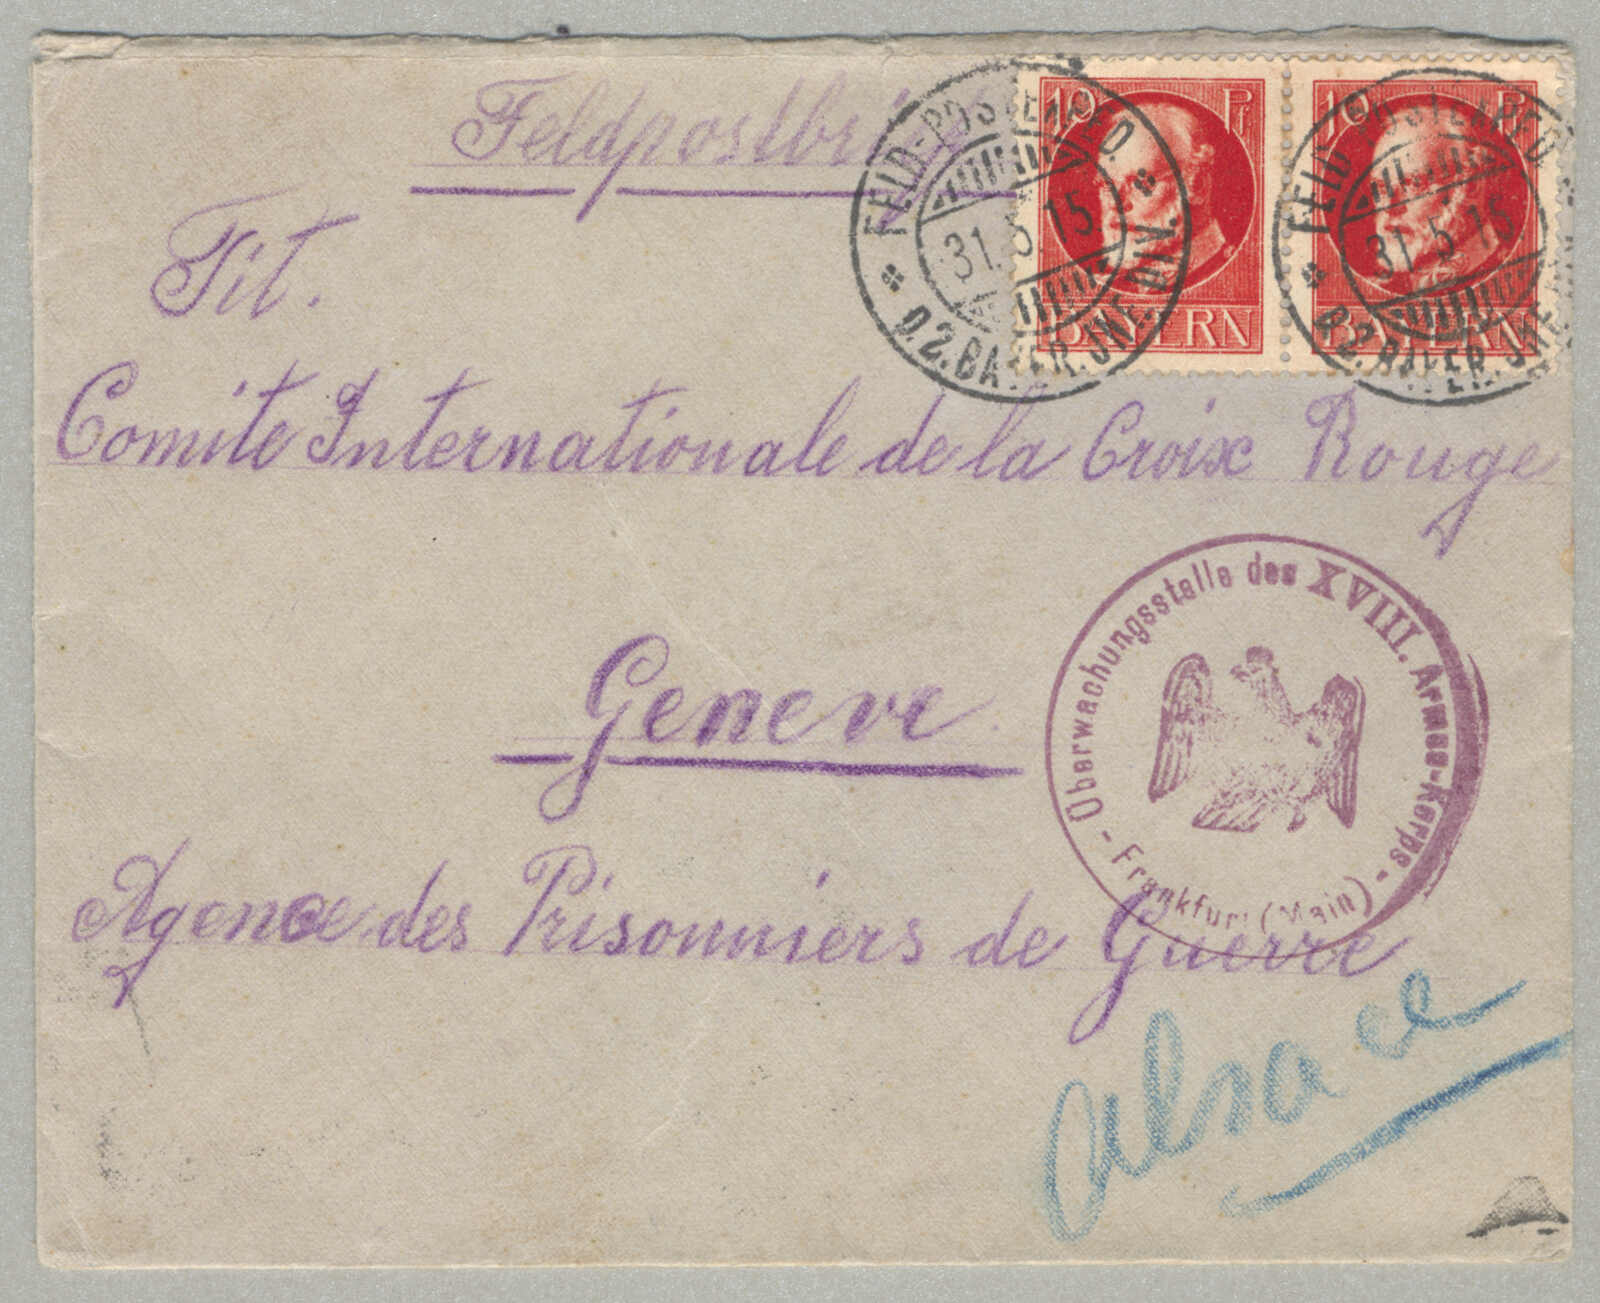 Feldpostbrief
10 Pf
BAYERN
10 Pf
BAYERN
FELD-POSTEXPED.
31.5.15
D.2.BAYER.INF.DIV.
FELD-POSTEXPED.
31.5.15
D.2.BAYER.INF.
Tit.
Comite Internationale de la Croix Rouge
Überwachungsstelle des XVIII. Armee-Korps
- Frankfurt (Main) -
Geneve
Agence des Prisonniers de Guerre
alsace